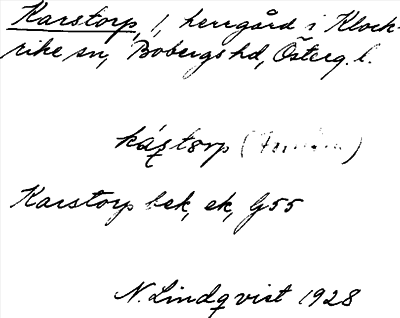 Karstorp, 1, herrgård i Klock-
rike sn, Bobergs hd, Österg. l.
kástorp
Karstorp bek, ek, G55
N. Lindqvist 1928